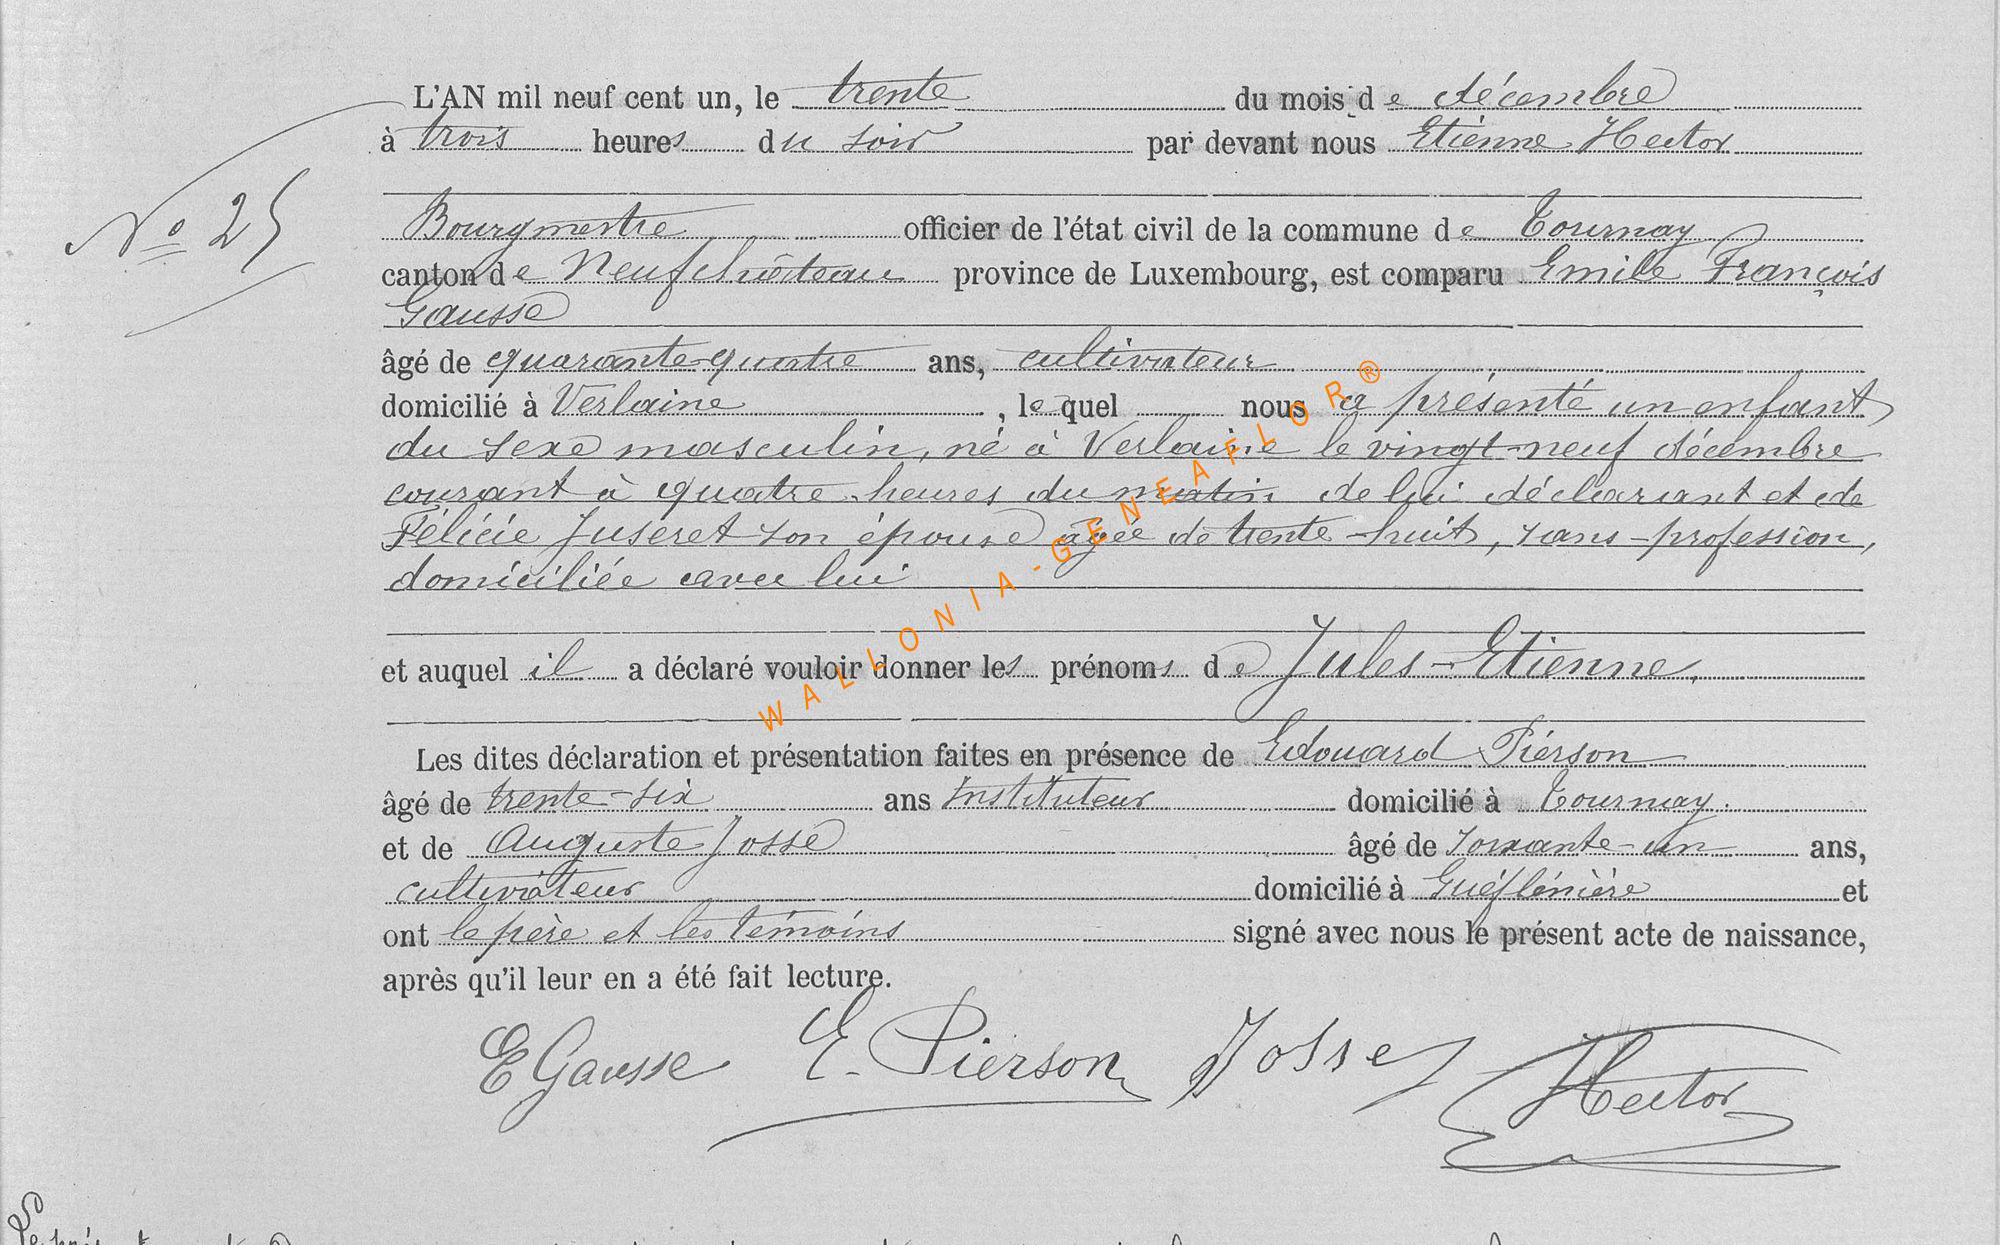 L'AN mil neuf cent un, le trente du mois de décembre
à trois heures du soir par devant nous Etienne Hector
No 25
Bourgmestre officier de l'état civil de la commune de Tournay
canton de Neufchâteau province de Luxembourg, est comparu Emile François
Gausse
âgé de quarante-quatre ans, cultivateur
domicilié à Verlaine, lequel nous a présenté un enfant
du sexe masculin, né à Verlaine le vingt-neuf décembre
courant à quatre heures du matin de lui déclarant et de
Félicie Juseret son épouse âgée de trente-huit, sans-profession,
domiciliée avec lui
et auquel il a déclaré vouloir donner les prénoms de Jules-Etienne.
Les dites déclaration et présentation faites en présence de Edouard Piérson
âgé de trente-six ans Instituteur domicilié à Tournay.
et de Auguste Josse âgé de soixante-un ans,
cultivateur domicilié à et
ont le père et les témoins signé avec nous le présent acte de naissance,
après qu'il leur en a été fait lecture.
E Gausse E. Pierson Josse Hector
WALLONIA-GENEAFLOR®